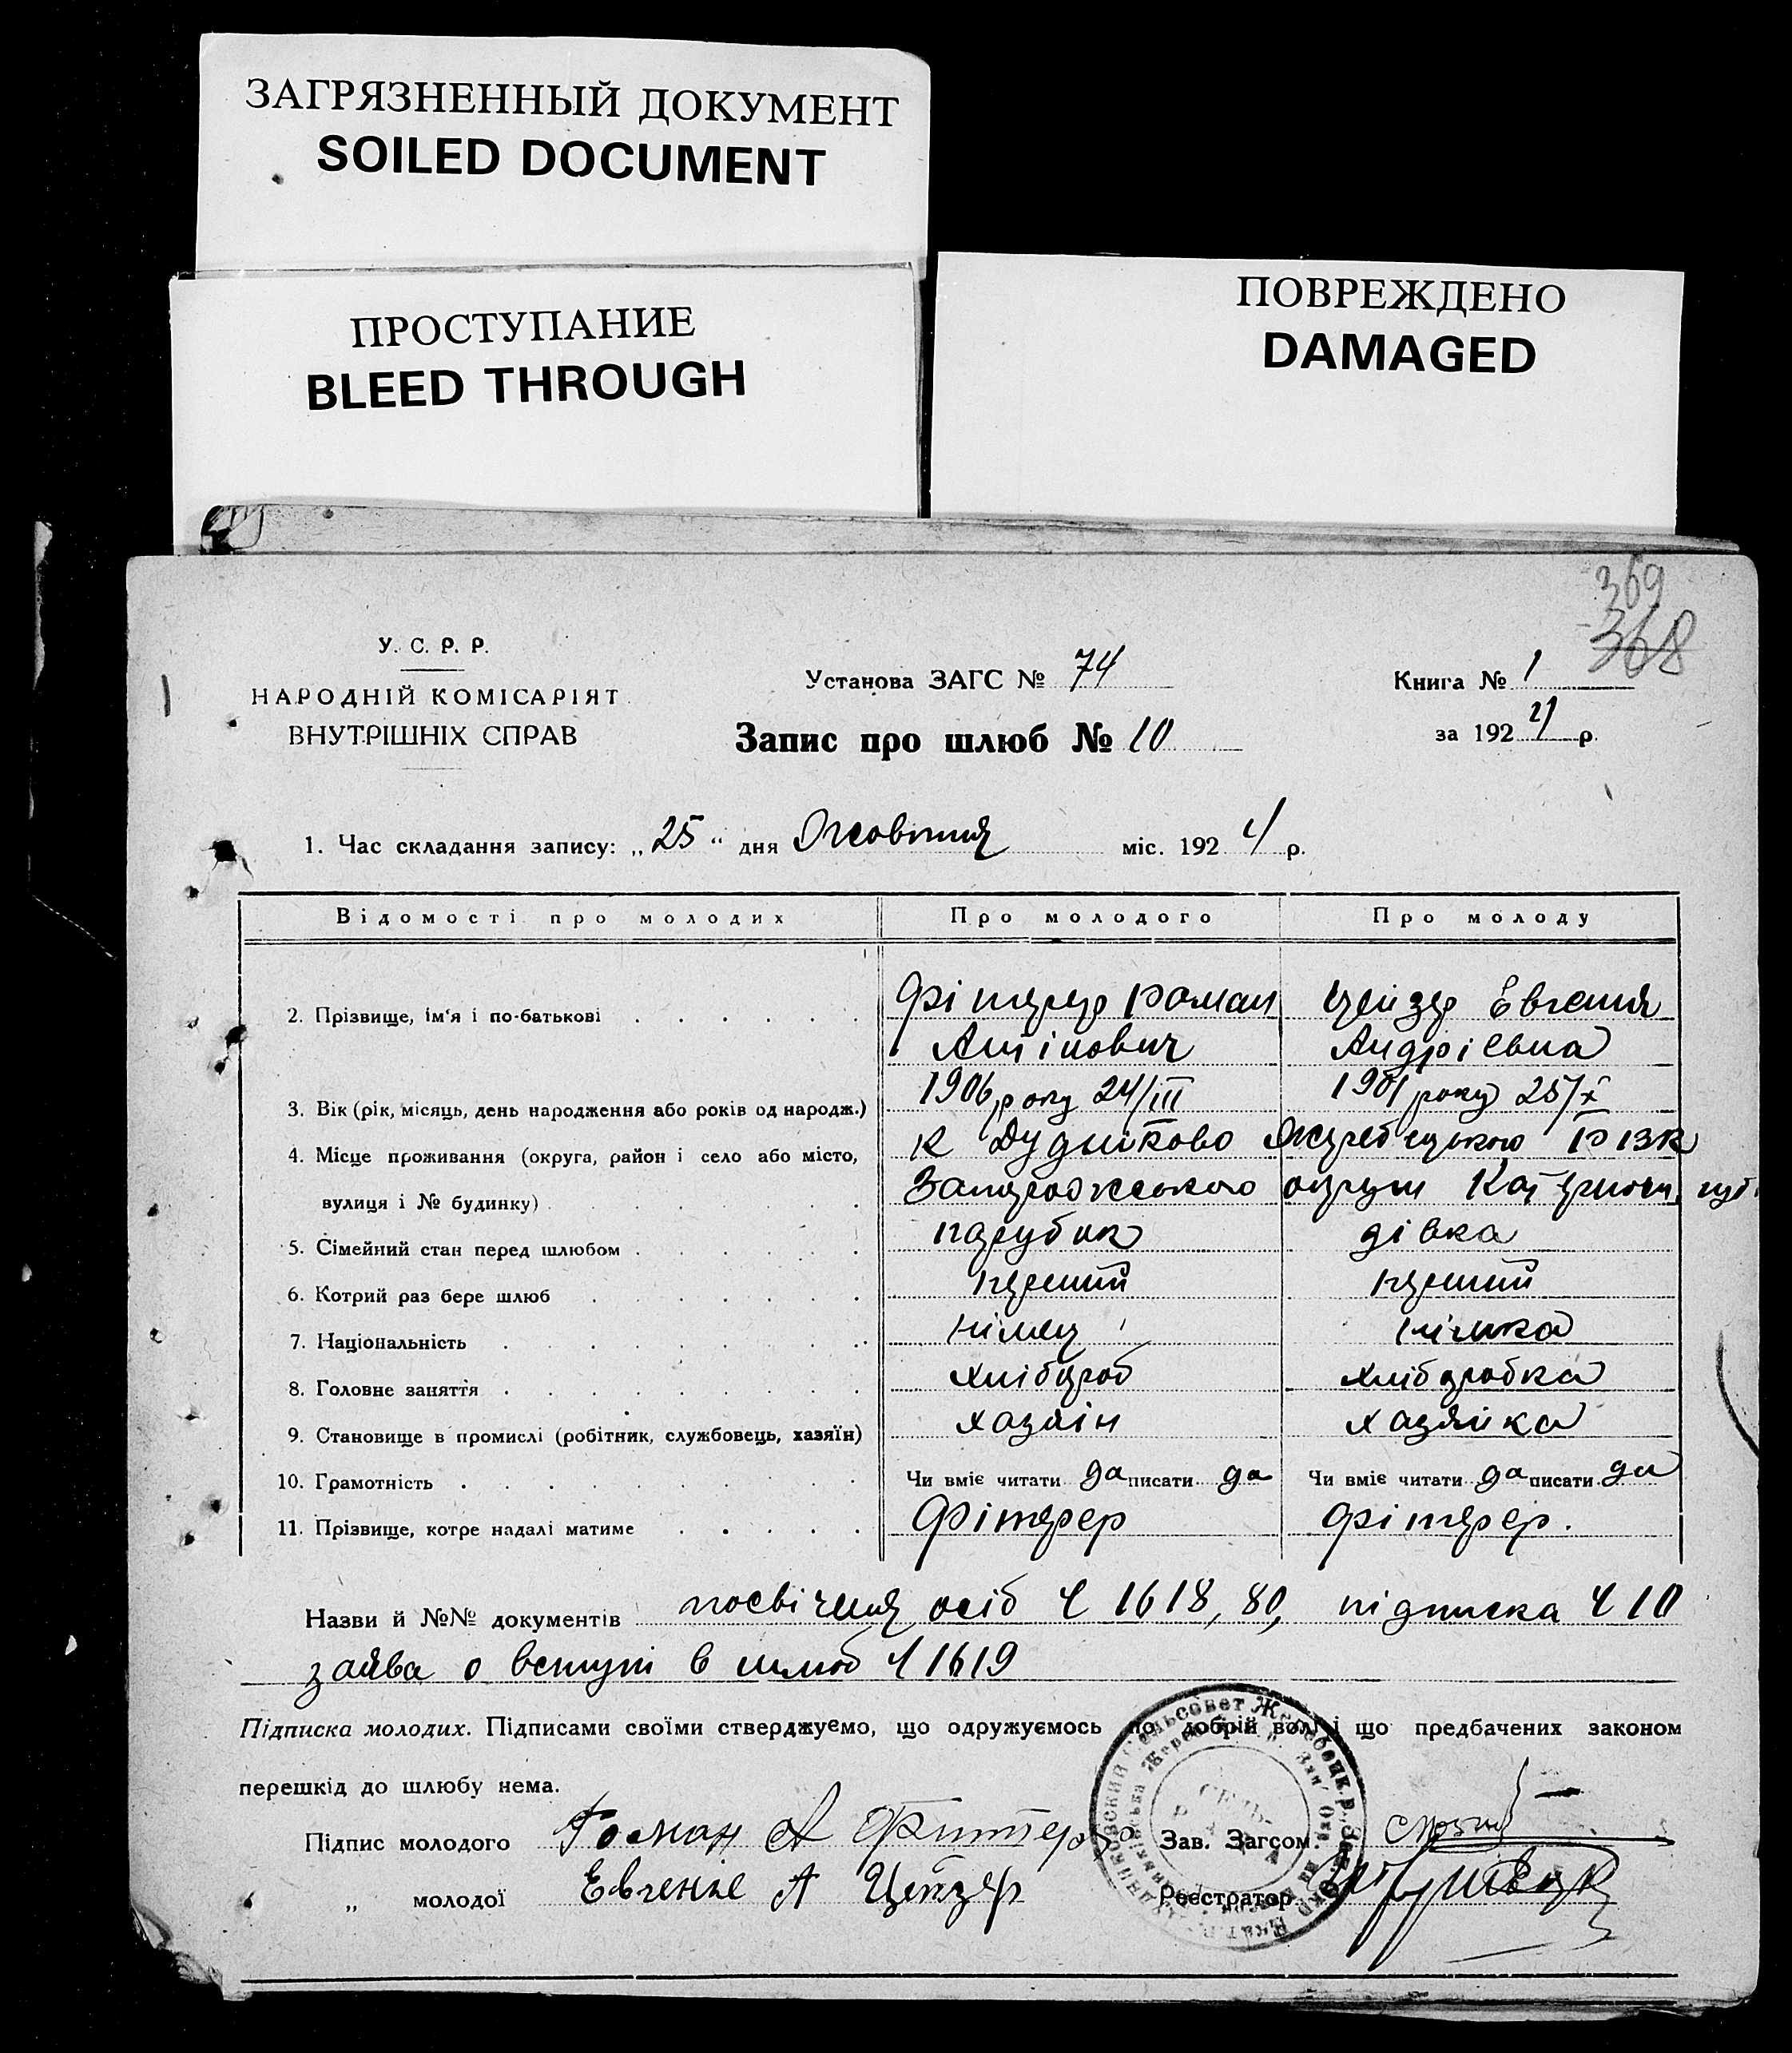 ЗАГРЯЗНЕННЫЙ ДОКУМЕНТ
SOILED DOCUMENT
ПРОСТУПАНИЕ
BLEED THROUGH
ПОВРЕЖДЕНО
DAMAGED
369
368
У. С. Р. Р.
НАРОДНІЙ КОМІСАРІЯТ
ВНУТРІШНІХ СПРАВ
Установа ЗАГС № 74
Запис про шлюб № 10
Книга № 1
за 1924 р.
1. Час складання запису: „25“ дня Жовтня міс. 1924 р.
Відомості про молодих Про молодого Про молоду
2. Прізвище, ім'я і по-батькові Фітерер Роман Цейзер Евгения
Антінович Андріевна
3. Вік (рік, місяць, день народження або років од народж.) 1906 року 24/III 1901 року 25/X
4. Місце проживання (округа, район і село або місто, К Дудніково Жеребецького РІЗК
вулиця і № будинку) Запорожського округи Катеринос. губ.
5. Сімейний стан перед шлюбом парубок дівка
6. Котрий раз бере шлюб перший перший
7. Національність німец німка
8. Головне заняття хлібороб хліборобка
9. Становище в промислі (робітник, службовець, хазяїн) хазяін хазяйка
10. Грамотність Чи вміє читати да писати да Чи вміє читати да писати да
11. Прізвище, котре надалі матиме Фітерер Фітерер.
Назви й №№ документів посвічення осіб Ч 1618, 80, підписка Ч 10
заява о вступі в шлюб Ч 1619
Підписка молодих. Підписами своїми стверджуємо, що одружуємось по добрій волі і що предбачених законом
перешкід до шлюбу нема.
Підпис молодого Роман А Фиттерер Зав. Загсом
„ молодої Евгение А Цейзер Реєстратор